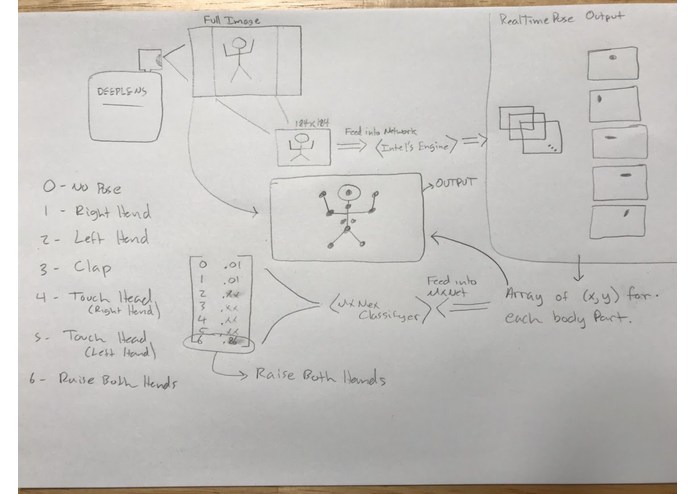 Full Image
RealTimePose Output
DEEPLENS
184x184
Feed into Network
<Intel's Engine>
OUTPUT
0 - No Pose
1 - Right Hand
2 - Left Hand
3 - Clap
4 - Touch Head
(Right Hand)
5 - Touch Head
(Left Hand)
6 - Raise Both Hands
0 .01
1 .01
2
3
4
5
6
Raise Both Hands
Classifyer
Feed into
MxNet
Array of (x,y) for
each body Part.